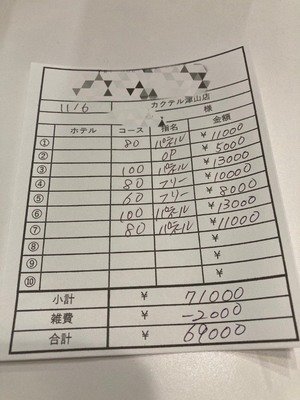 11/6 カクテル津山店
様
ホテル コース 指名 金額
① 80 パネル ¥11000
② OP ¥5000
③ 100 パネル ¥13000
④ 80 フリー ¥10000
⑤ 60 フリー ¥8000
⑥ 100 パネル ¥13000
⑦ 80 パネル ¥11000
⑧ ¥
⑨ ¥
⑩ ¥
小計 ¥ 71000
雑費 ¥ -2000
合計 ¥ 69000